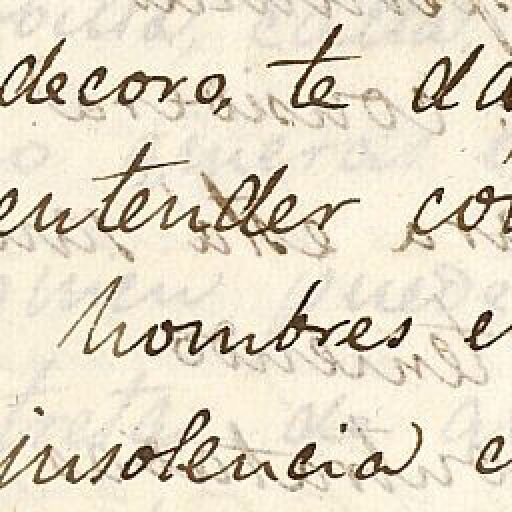 decoro, te da
entender có
hombres e
insolencia c